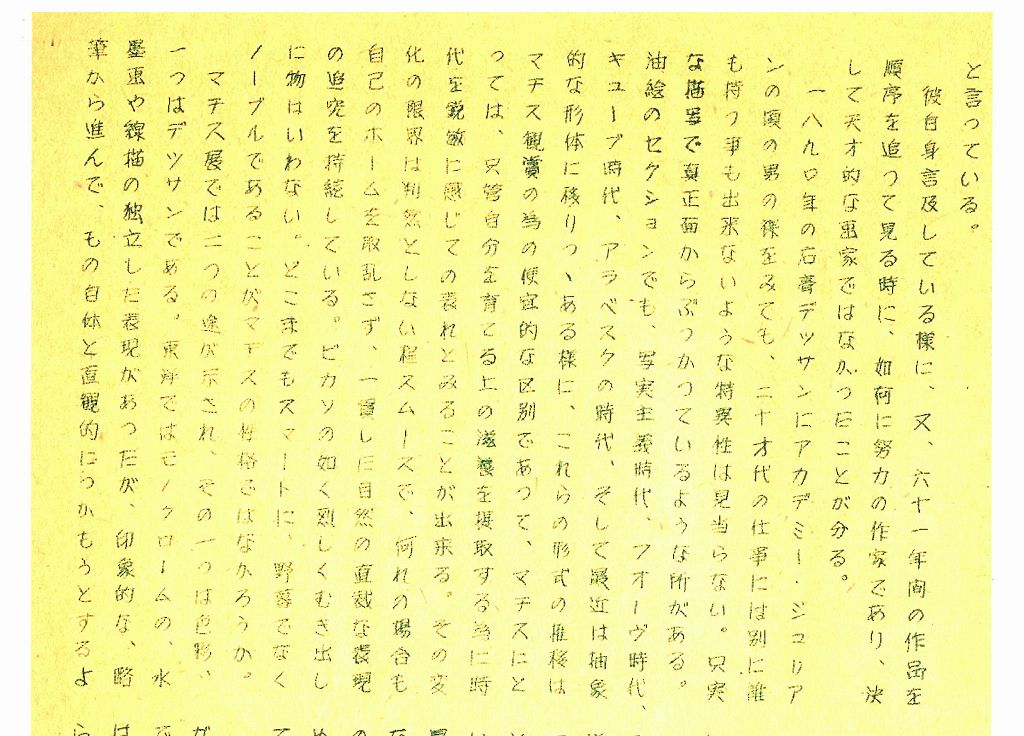 と言っている。
彼自身言及している様に、又、六十一年間の作品を
順序を追つて見る時に、如何に努力の作家であり、決
して天才的な画家ではなかつたことが分る。
一八九〇年の石膏デッサンにアカデミー・ジュリア
ンの頃の男の裸をみても、二十才代の仕事には別に誰
も持つ事も出来ないような特異性は見当らない。只実
な描写で真正面からぶつかつているような所がある。
油絵のセクションでも、写実主義時代、フオーヴ時代、
キューブ時代、アラベスクの時代、そして最近は抽象
的な形体に移りつゝある様に、これらの形式の推移は
マチス観賞の為の便宜的な区別であつて、マチスにと
つては、只管自分を育てる上の滋養を摂取する当に時
代を鋭敏に感じての表れとみることが出来る。その変
化の限界は判然としない程スムースで、何れの場合も
自己のホームを取乱さず、一貫した自然の直裁な表現
の追究を持続している。ピカソの如く烈しくむき出し
に物はいわない。どこまでもスマートに、野暮でなく
ノーブルであることがマチスの性格ではなかろうか。
マチス展では二つの途が示され、その一つは色彩、
一つはデツサンである。東洋ではモノクロームの、水
墨画や線描の独立した表現があつたが、印象的な、略
筆から進んで、もの自体と直観的につかもうとするよ